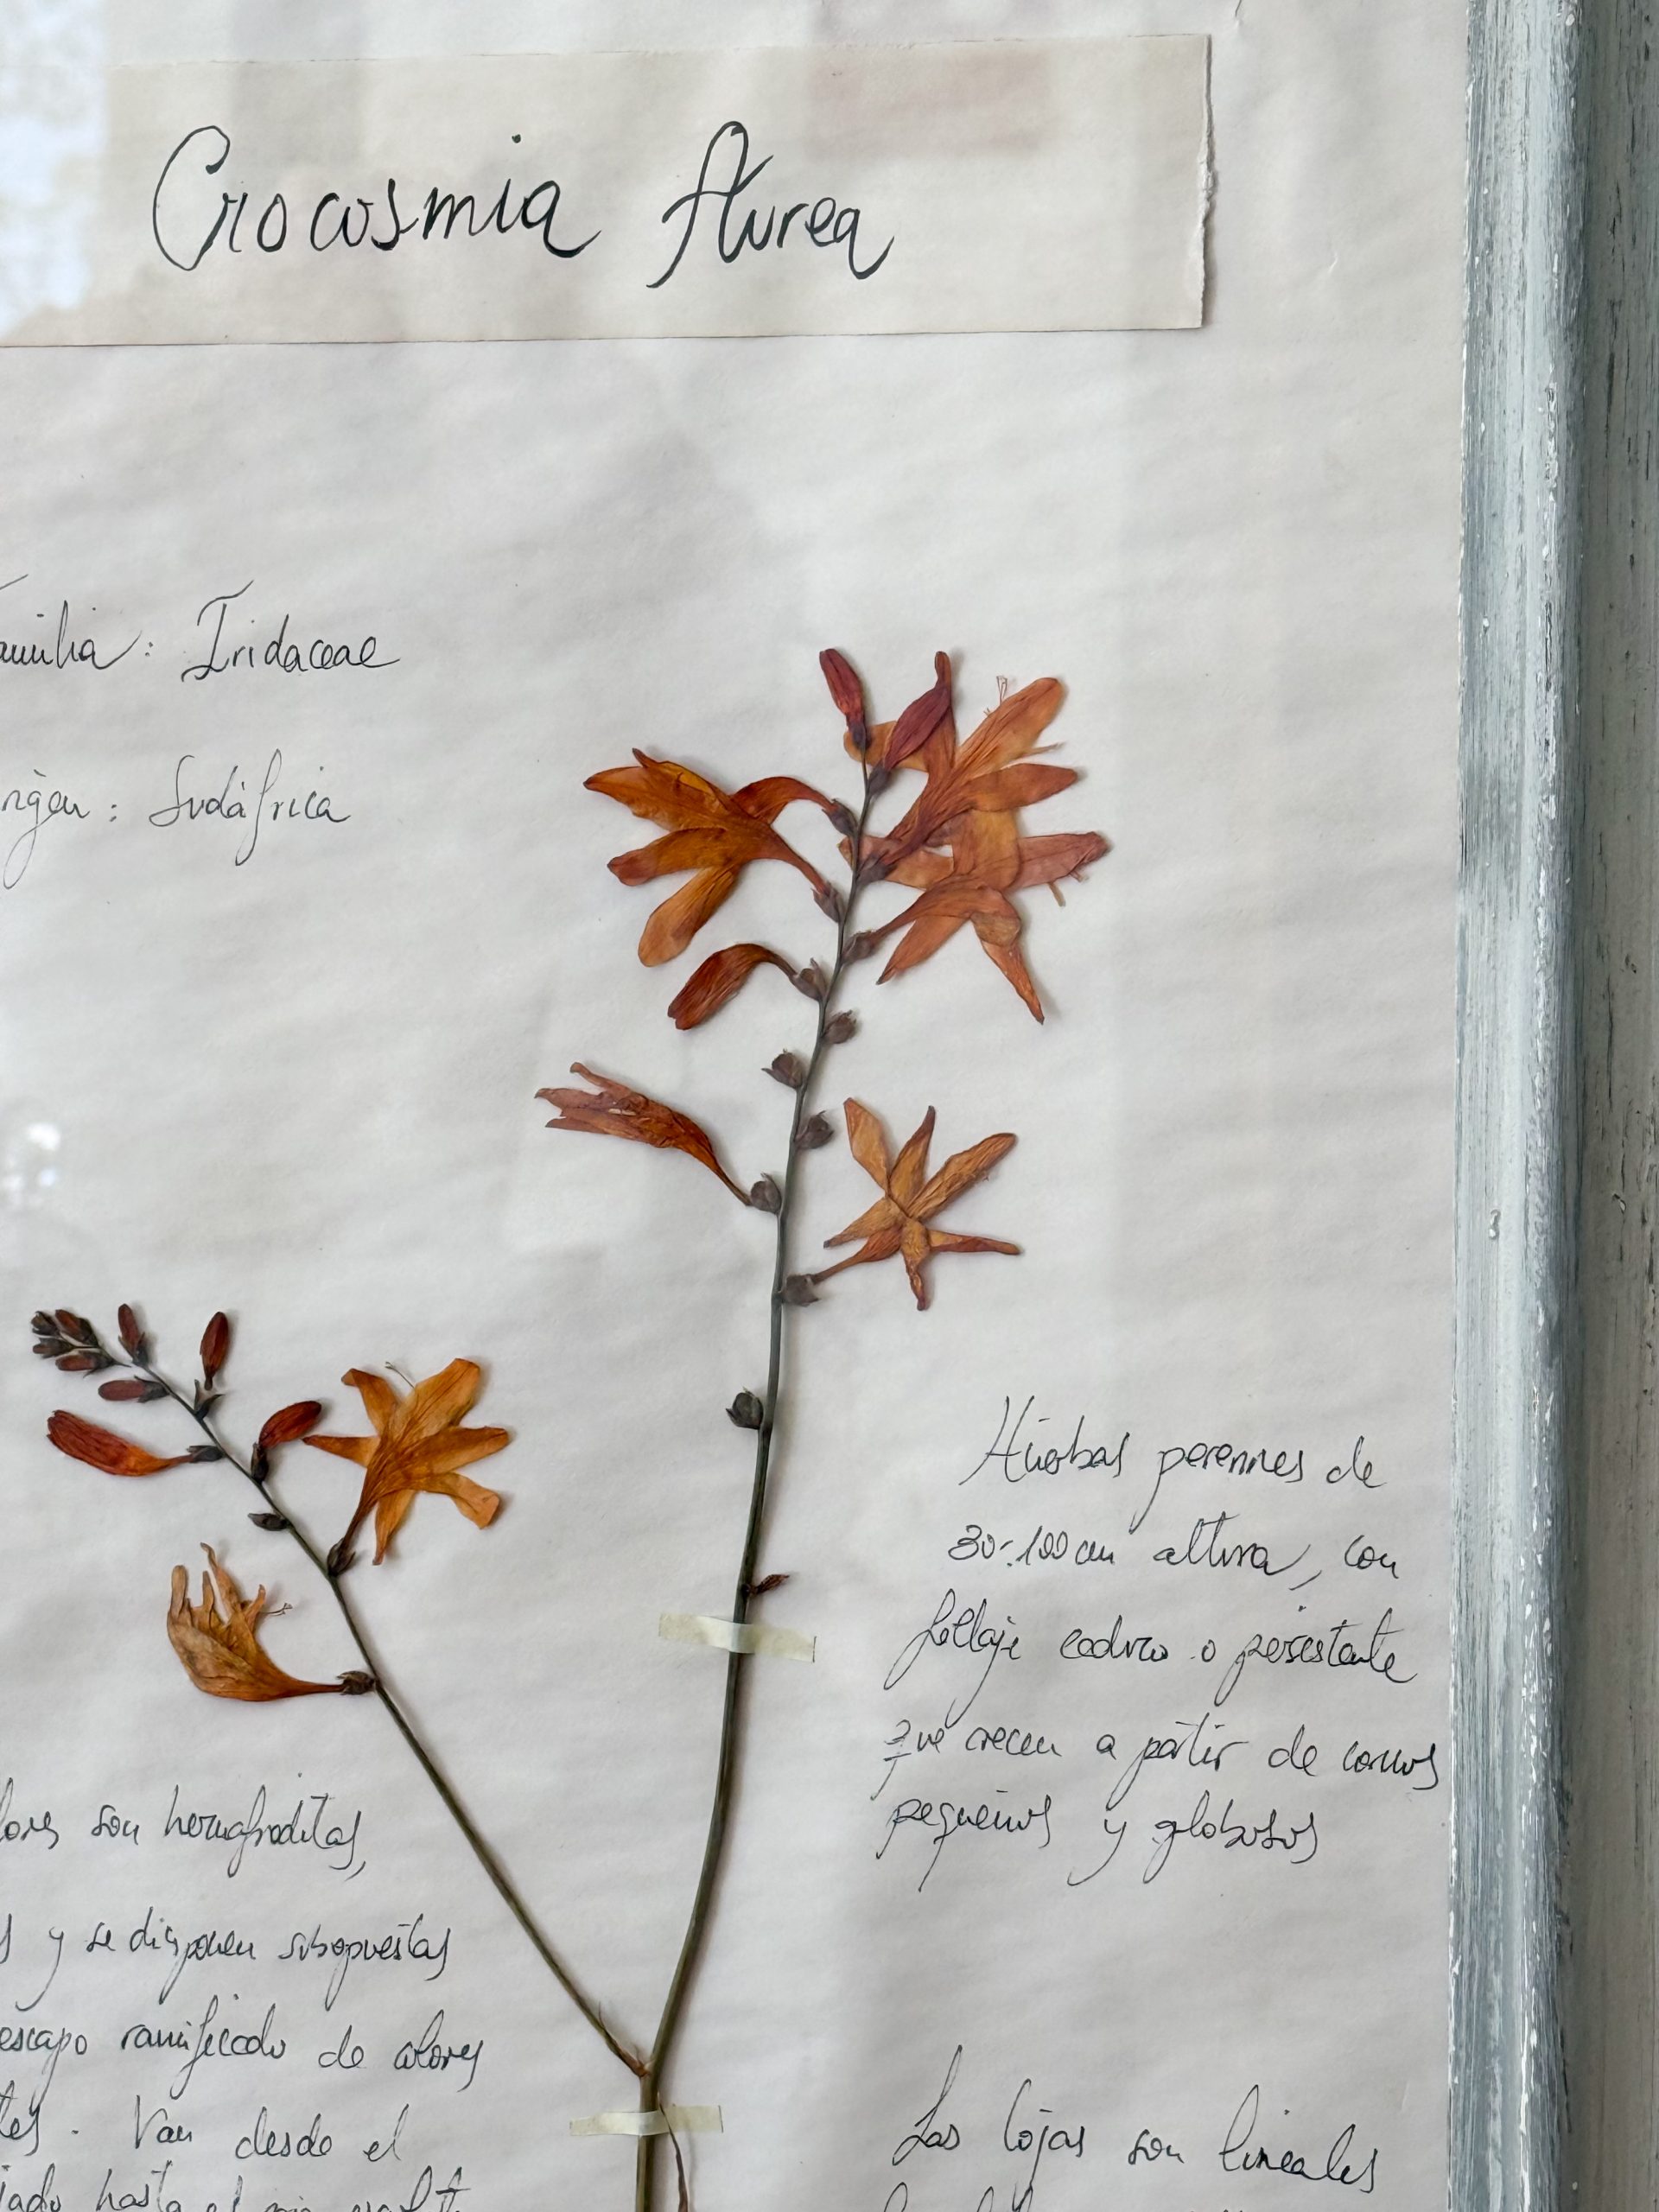 Crocosmia Aurea
amilia: Iridaceae
rigen: Sudáfrica
Hierbas perennes de
30-100 cm altura, con
follaje caduco o persistente
que crecen a pártir de cormos
pequeños y globosos
lores son hermafroditas,
s y se disponen subopuestas
escapo ramificado de colores
tes. Van desde el
jado hasta el
Las hojas son lineales